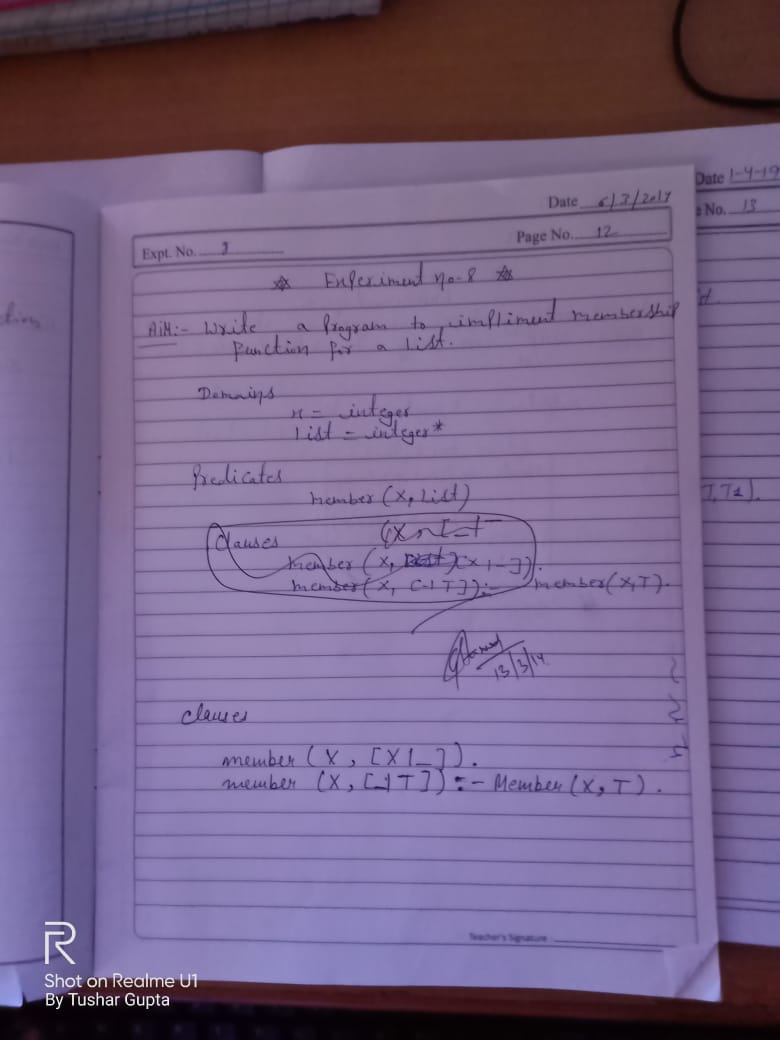 Date 1-4-19
e No. 13
Date 6/3/2014
Page No. 12
Expt. No.
Experiment no-8
AiM:- Write a Program to impliment membership
function for a List.
Domains
x = integer
List = integer*
Predicates
member (X, List)
Clauses
member (X, [X|_]).
member (X, [_|T]):- member(X,T).
13/3/14
clauses
member (X, [X|_]).
member (X, [_|T]) :- Member (X, T).
T,T2).
Teacher's Signature
Shot on Realme U1
By Tushar Gupta